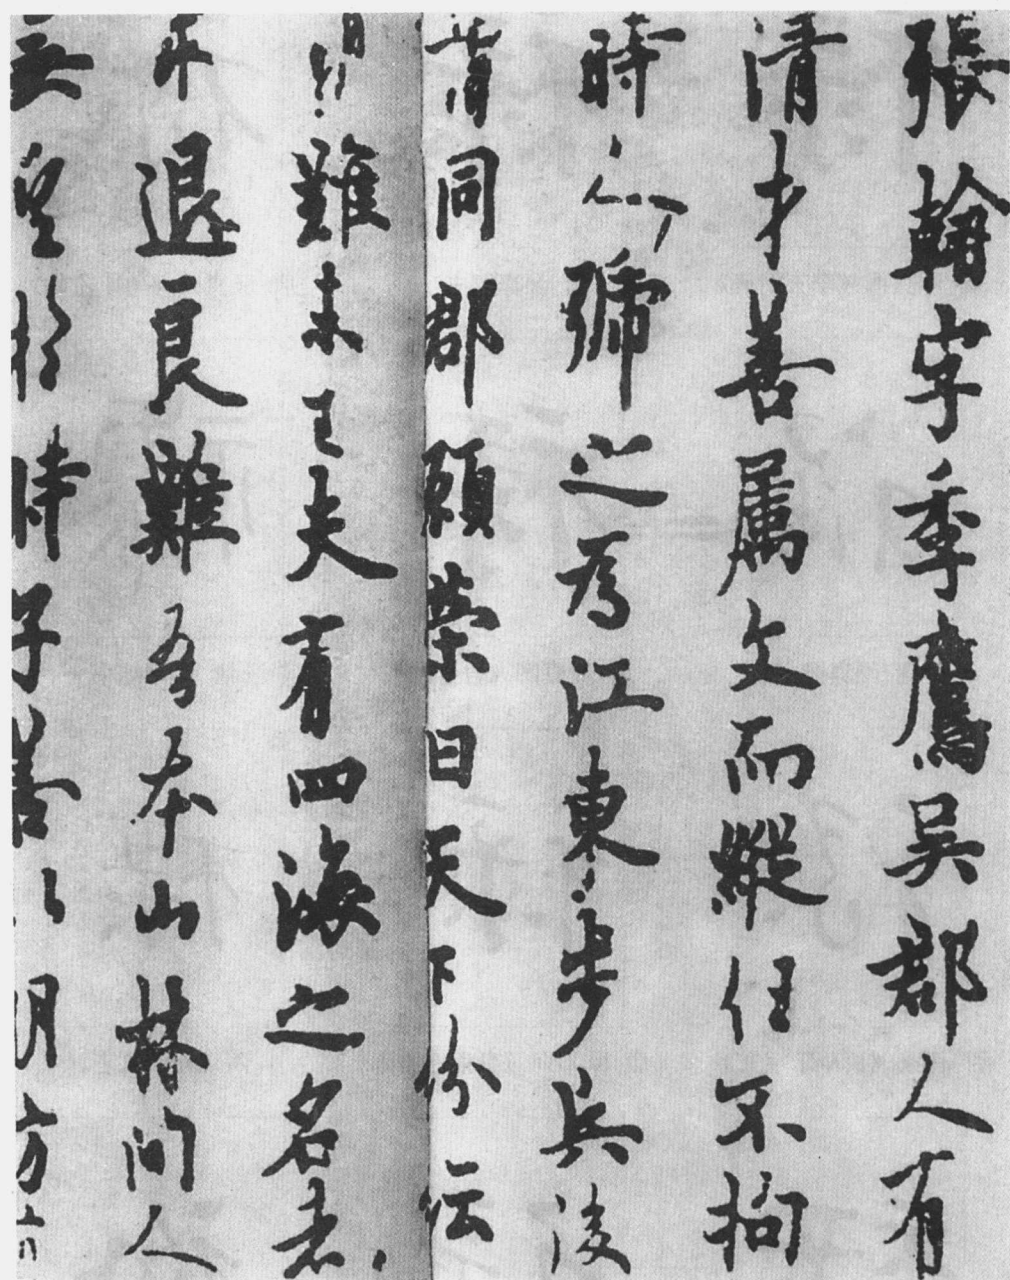 張翰字季鷹吳郡人有
清才善屬文而縱任不拘
時人號之為江東步兵後
謂同郡顧榮曰天下紛紜
難未已夫有四海之名者
求退良難吾本山林間人
無望於時子善以明防